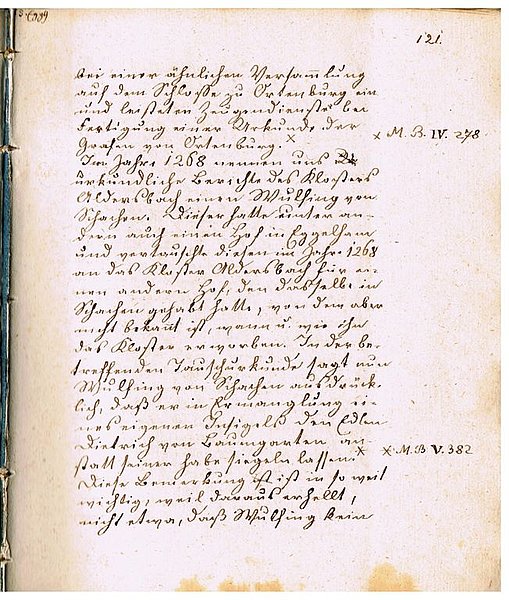 121.
bei einer ähnlichen Versammlung
auf dem Schlosse zu Ortenburg ein
und leisteten Zeugendienste bei
Fertigung einer Urkunde der
Grafen von Ortenburg. ×
× M. B. IV. 278.
Im Jahre 1268 nennen uns
urkundliche Berichte des Klosters
Aldersbach einen Wulfing von
Schachen. Dieser hatte unter an-
dern auch einen Hof in Eggelham
und vertauschte diesen im Jahre 1268
an das Kloster Aldersbach für ei-
nen andern Hof, den dasselbe in
Schachen gehabt hatte, von dem aber
nicht bekant ist, wann u. wie ihn
das Kloster erworben. In der be-
treffenden Tauschurkunde sagt nun
Wulfing von Schachen ausdrück-
lich, daß er in Ermanglung ei-
nes eigenen Insigels den Edlen
Dietrich von Baumgarten an-
statt seiner habe siegeln lassen. ×
× M. B. V. 382
Diese Bemerkung ist ist in so weit
wichtig, weil daraus erhellt,
nicht etwa, daß Wulfing kein